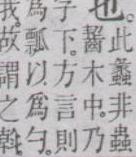 此蠡非蟲
也。齧木中。乃
子下。方言則
爲瓢以爲勺。
我。故謂之斡。